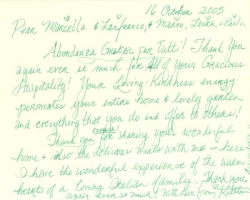 16 October 2005
Dear Marcella & Lanfranco, & Marco, Leila, &
Abondanza Grazie per Tutti! Thank You
again ever so much for all of Your Gracious
Hospitality! Your Loving-Kindness energy
permeates your entire home & lovely garden,
and everything that you do and offer to others!
Thank you for sharing your wonderful
home & also the delicious meals with me is here
I have the wonderful experience of the warm
hearts of a loving Italian family. Thank you
again ever so much! With love from